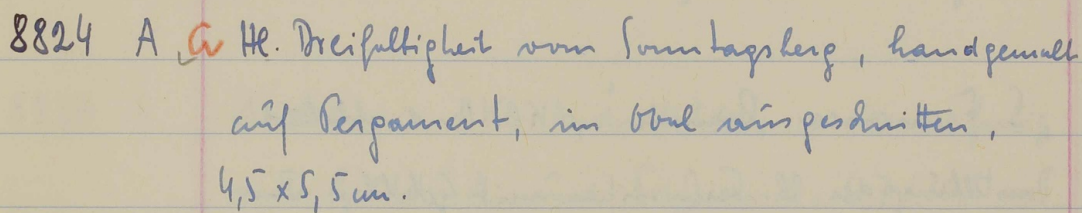 8824 A, a Hl. Dreifaltigkeit vom Sonntagsberg, handgemalt
auf Pergament, im Oval ausgeschnitten,
4,5 x 5,5 cm.